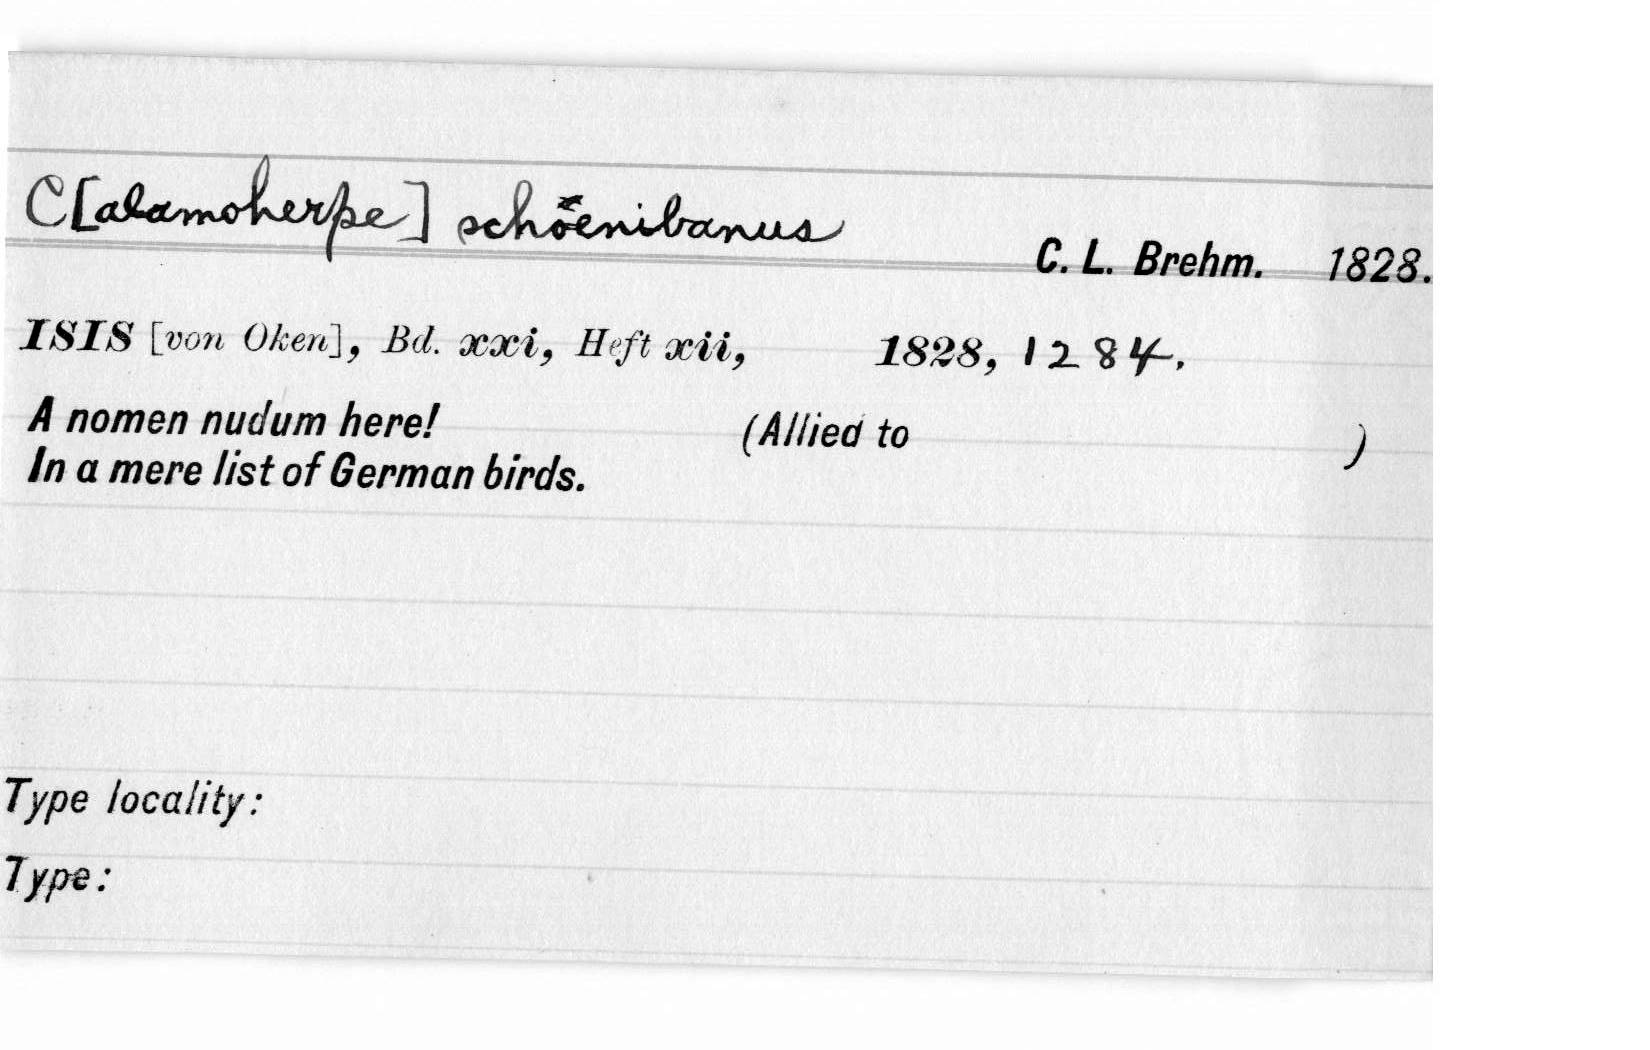 C[alamoherpe] schöenibanus
C. L. Brehm. 1828.
ISIS [von Oken], Bd. xxi, Heft xii, 1828, 1284.
A nomen nudum here! (Allied to )
In a mere list of German birds.
Type locality:
Type: